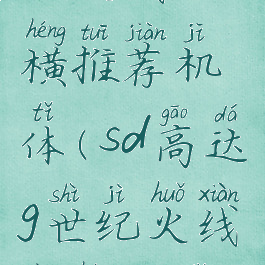 héng tuī jiàn jī
横推荐机
tǐ gāo dá
体(sd高达
shì jì huǒ xiàn
g世纪火线